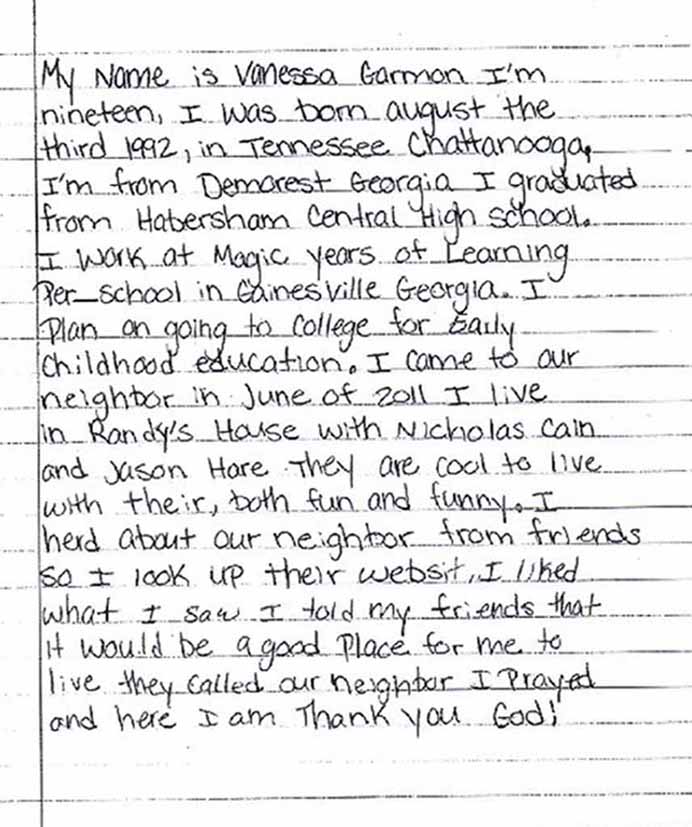 My Name is Vanessa Garmon I'm
nineteen, I was born august the
third 1992, in Tennessee Chattanooga,
I'm from Demorest Georgia I graduated
from Habersham Central High school.
I work at Magic years of Learning
Per-school in Gainesville Georgia. I
Plan on going to College for Early
Childhood education. I came to our
neighbor in June of 2011 I live
in Randy's House with Nicholas Cain
and Jason Hare They are cool to live
with their, both fun and funny. I
herd about our neighbor from friends
so I look up their websit, I liked
what I saw I told my friends that
it would be a good Place for me to
live they called our neighbor I Prayed
and here I am Thank you God!